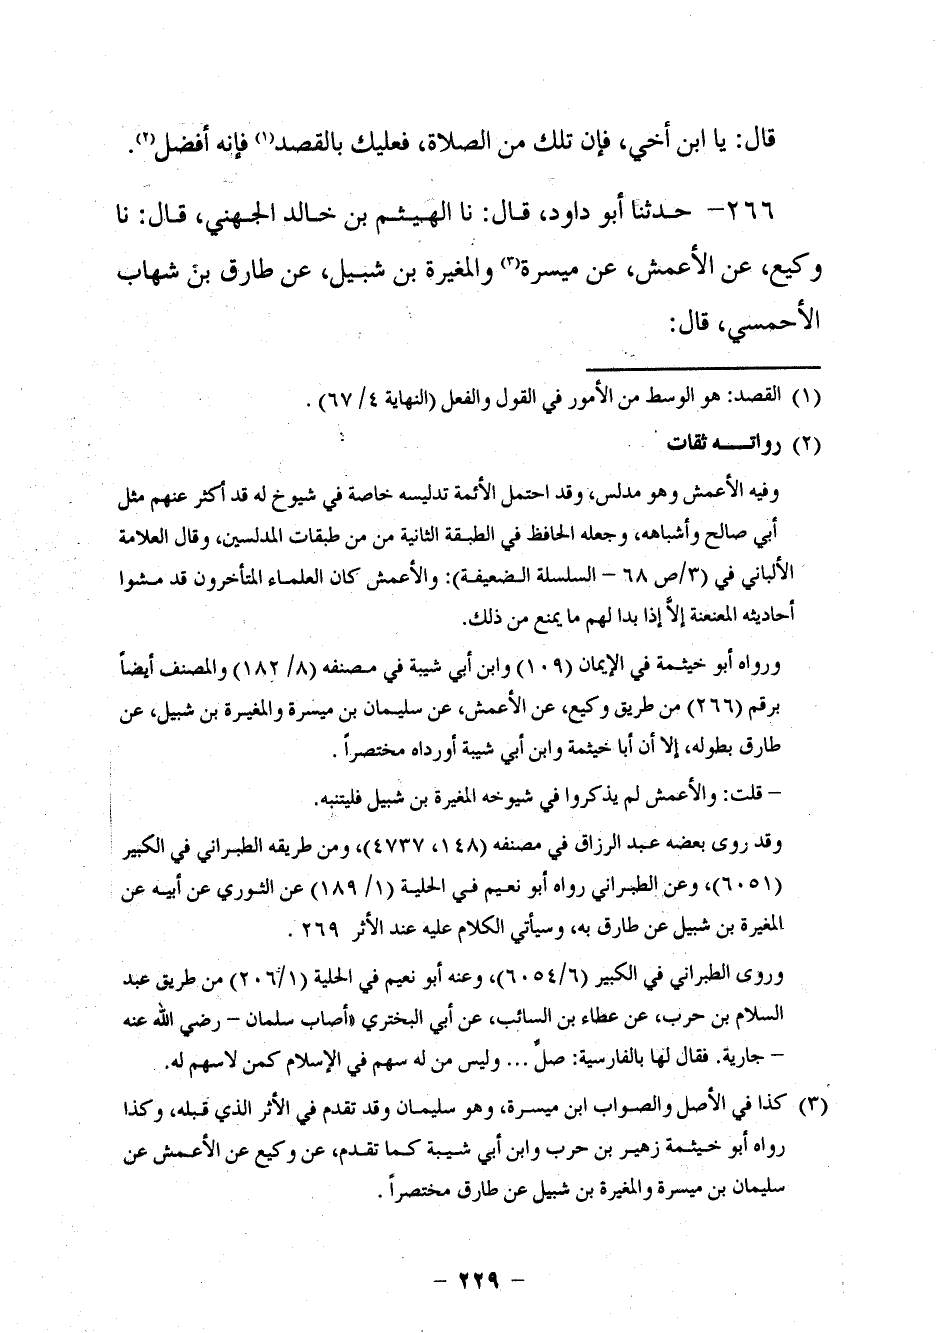 قال: يا ابن أخي، فإن تلك من الصلاة، فعليك بالقصد(١) فإنه أفضل(٢).
٢٦٦- حدثنا أبو داود، قال: نا الهيثم بن خالد الجهني، قال: نا
وكيع، عن الأعمش، عن ميسرة(٣) والمغيرة بن شبيل، عن طارق بن شهاب
الأحمسي، قال:
(١) القصد: هو الوسط من الأمور في القول والفعل (النهاية ٤/ ٦٧) .
(٢) رواته ثقات
وفيه الأعمش وهو مدلس، وقد احتمل الأئمة تدليسه خاصة في شيوخ له قد أكثر عنهم مثل
أبي صالح وأشباهه، وجعله الحافظ في الطبقة الثانية من من طبقات المدلسين، وقال العلامة
الألباني في (٣/ص ٦٨ – السلسلة الضعيفة): والأعمش كان العلماء المتأخرون قد مشوا
أحاديثه المعنعنة إلاَّ إذا بدا لهم ما يمنع من ذلك.
ورواه أبو خيثمة في الإيمان (١٠٩) وابن أبي شيبة في مصنفه (٨/ ١٨٢) والمصنف أيضاً
برقم (٢٦٦) من طريق وكيع، عن الأعمش، عن سليمان بن ميسرة والمغيرة بن شبيل، عن
طارق بطوله، إلا أن أبا خيثمة وابن أبي شيبة أورداه مختصراً .
– قلت: والأعمش لم يذكروا في شيوخه المغيرة بن شبيل فليتنبه.
وقد روى بعضه عبد الرزاق في مصنفه (١٤٨، ٤٧٣٧)، ومن طريقه الطبراني في الكبير
(٦٠٥١)، وعن الطبراني رواه أبو نعيم في الحلية (١/ ١٨٩) عن الثوري عن أبيه عن
المغيرة بن شبيل عن طارق به، وسيأتي الكلام عليه عند الأثر ٢٦٩ .
وروى الطبراني في الكبير (٦٠٥٤/٦)، وعنه أبو نعيم في الحلية (٢٠٦/١) من طريق عبد
السلام بن حرب، عن عطاء بن السائب، عن أبي البختري «أصاب سلمان – رضي الله عنه
– جارية. فقال لها بالفارسية: صلِّ ... وليس من له سهم في الإسلام كمن لاسهم له.
(٣) كذا في الأصل والصواب ابن ميسرة، وهو سليمان وقد تقدم في الأثر الذي قبله، وكذا
رواه أبو خيثمة زهير بن حرب وابن أبي شيبة كما تقدم، عن وكيع عن الأعمش عن
سليمان بن ميسرة والمغيرة بن شبيل عن طارق مختصراً .
– ٢٢٩ –